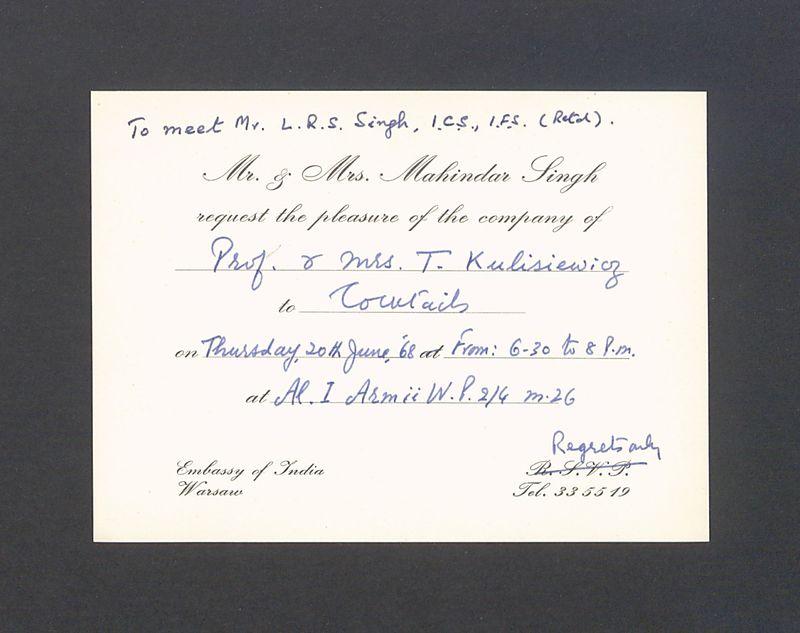 To meet Mr. L.R.S. Singh, I.C.S., I.F.S. (Retd).
Mr. & Mrs. Mahindar Singh
request the pleasure of the company of
Prof. & Mrs. T. Kulisiewicz
to Cocktails
on Thursday, 20th June, '68 at From: 6-30 to 8 P.m.
at Al. I Armii W.P. 2/4 m. 26
Regrets only
Embassy of India
R. S. V. P.
Warsaw
Tel. 33 55 19